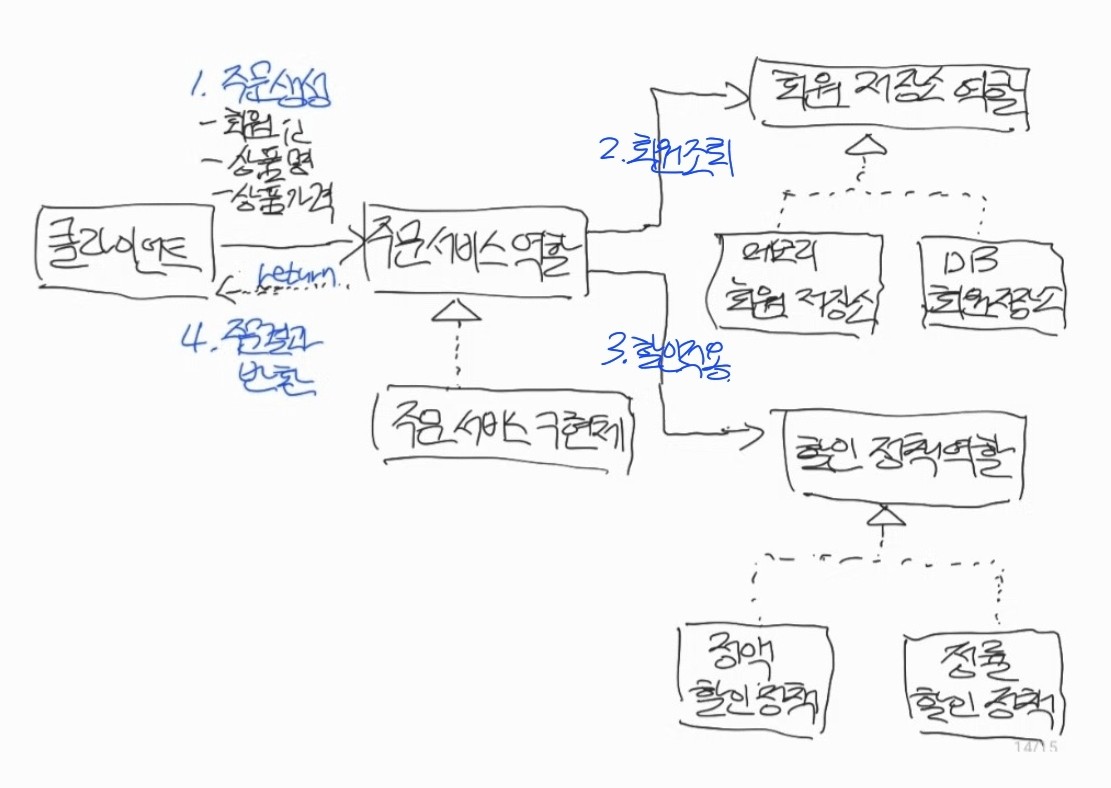 1. 주문생성
- 회원 id
- 상품명
- 상품가격
클라이언트
return
4. 주문결과
반환
주문 서비스 역할
주문 서비스 구현체
2. 회원조회
회원 저장소 역할
메모리
회원 저장소
DB
회원저장소
3. 할인적용
할인 정책 역할
정액
할인 정책
정률
할인 정책
14/15